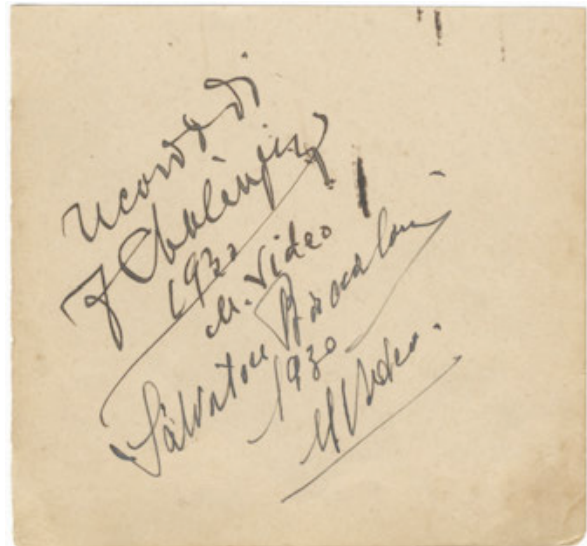 Ricordo di
F Chaliapin
1930
M. Video
Salvatore Baccaloni
1930
M Video.